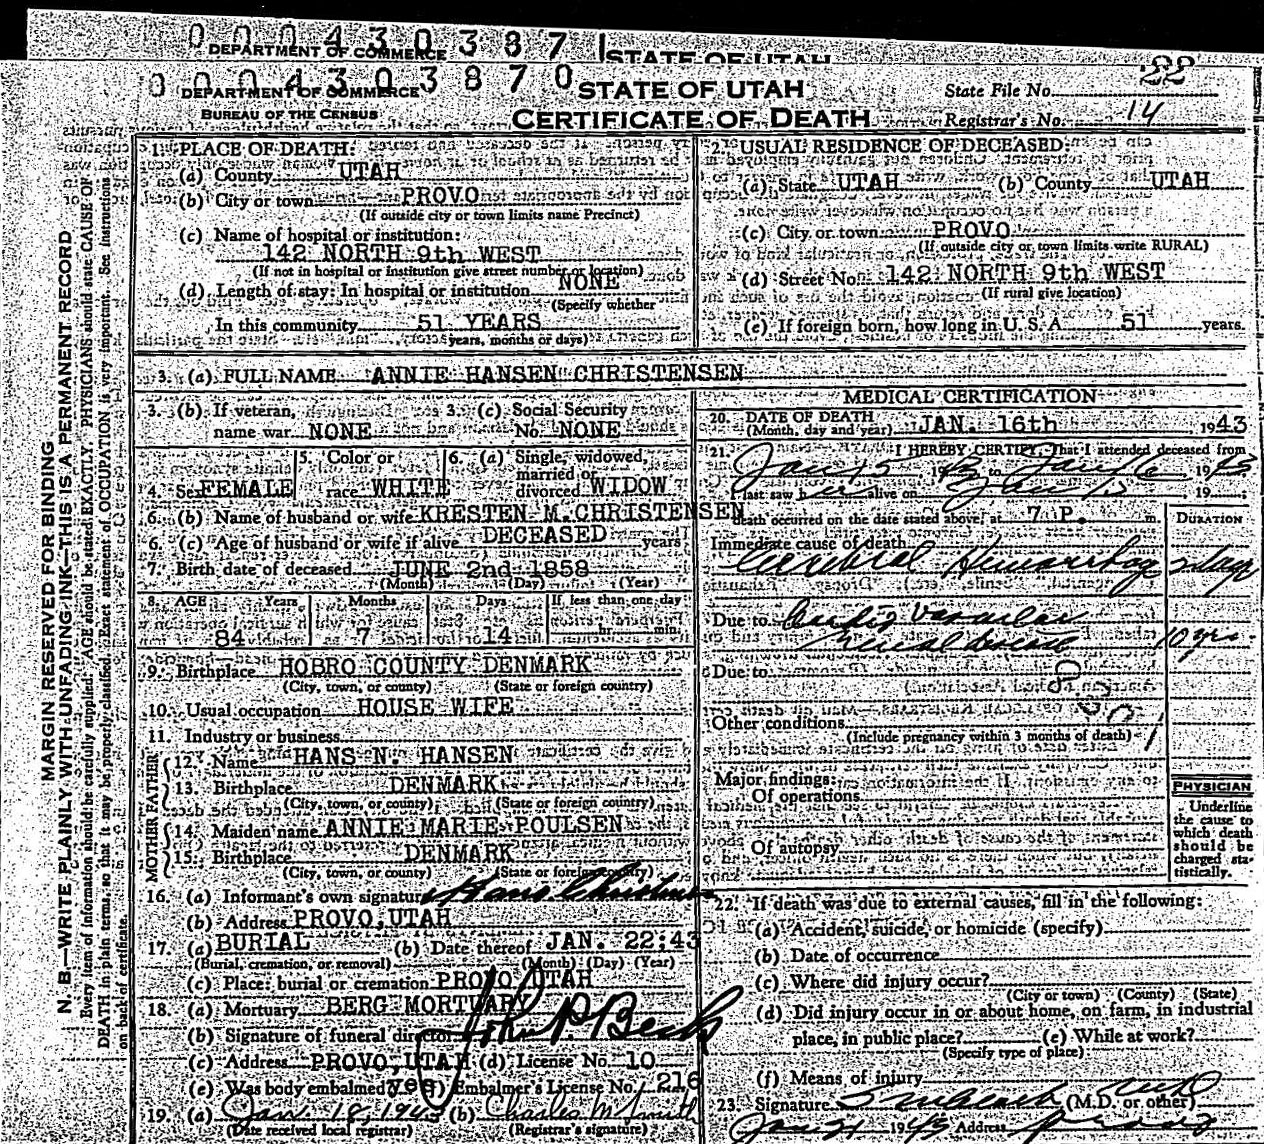 0 0 0 4 3 0 3 8 7
DEPARTMENT OF COMMERCE STATE OF UTAH
0 0 0 4 3 0 3 8 7 0
DEPARTMENT OF COMMERCE
BUREAU OF THE CENSUS
STATE OF UTAH
CERTIFICATE OF DEATH
State File No. 22
Registrar's No. 14
MARGIN RESERVED FOR BINDING
N. B.—WRITE PLAINLY WITH UNFADING INK—THIS IS A PERMANENT RECORD
Every item of information should be carefully supplied. AGE should be stated EXACTLY. PHYSICIANS should state CAUSE OF
DEATH in plain terms, so that it may be properly classified. Exact statement of OCCUPATION is very important. See instructions
on back of certificate.
1. PLACE OF DEATH:
(a) County UTAH
(b) City or town PROVO
(If outside city or town limits name Precinct)
(c) Name of hospital or institution:
142 NORTH 9th WEST
(If not in hospital or institution give street number or location)
(d) Length of stay: In hospital or institution NONE
(Specify whether
In this community 51 YEARS
years, months or days)
2. USUAL RESIDENCE OF DECEASED:
(a) State UTAH (b) County UTAH
(c) City or town PROVO
(If outside city or town limits write RURAL)
(d) Street No. 142 NORTH 9th WEST
(If rural give location)
(e) If foreign born, how long in U. S. A. 51 years.
3. (a) FULL NAME ANNIE HANSEN CHRISTENSEN
3. (b) If veteran, name war NONE
3. (c) Social Security No. NONE
4. Sex FEMALE
5. Color or race WHITE
6. (a) Single, widowed, married or divorced WIDOW
6. (b) Name of husband or wife KRESTEN M. CHRISTENSEN
6. (c) Age of husband or wife if alive DECEASED years
7. Birth date of deceased JUNE 2nd 1858
(Month) (Day) (Year)
8. AGE Years Months Days If less than one day
84 7 14 hr. min.
9. Birthplace HOBRO COUNTY DENMARK
(City, town, or county) (State or foreign country)
10. Usual occupation HOUSE WIFE
11. Industry or business
FATHER
12. Name HANS N. HANSEN
13. Birthplace DENMARK
(City, town, or county) (State or foreign country)
MOTHER
14. Maiden name ANNIE MARIE POULSEN
15. Birthplace DENMARK
(City, town, or county) (State or foreign country)
16. (a) Informant's own signature Hans
(b) Address PROVO, UTAH
17. (a) BURIAL (b) Date thereof JAN. 22:43
(Burial, cremation, or removal) (Month) (Day) (Year)
(c) Place: burial or cremation PROVO UTAH
18. (a) Mortuary BERG MORTUARY
(b) Signature of funeral director
(c) Address PROVO, UTAH (d) License No. 10
(e) Was body embalmed? yes (f) Embalmer's License No. 216
19. (a) Jan. 18, 1943 (b) Charles M Smith
(Date received local registrar) (Registrar's signature)
MEDICAL CERTIFICATION
20. DATE OF DEATH
(Month, day and year) JAN. 16th 1943
21. I HEREBY CERTIFY, That I attended deceased from
Jan 15 1943 to Jan 16 1943
I last saw her alive on Jan 19
death occurred on the date stated above, at 7 P. m. DURATION
Immediate cause of death
Cerebral Hemorrhage 2 days
Due to Cardio Vascular
Renal disease 10 yrs.
Due to
Other conditions
(Include pregnancy within 3 months of death)
Major findings:
Of operations
Of autopsy
PHYSICIAN
Underline
the cause to
which death
should be
charged sta-
tistically.
22. If death was due to external causes, fill in the following:
(a) Accident, suicide, or homicide (specify)
(b) Date of occurrence
(c) Where did injury occur?
(City or town) (County) (State)
(d) Did injury occur in or about home, on farm, in industrial
place, in public place? (e) While at work?
(Specify type of place)
(f) Means of injury
23. Signature (M.D. or other)
Jan 21 1943 Address Provo